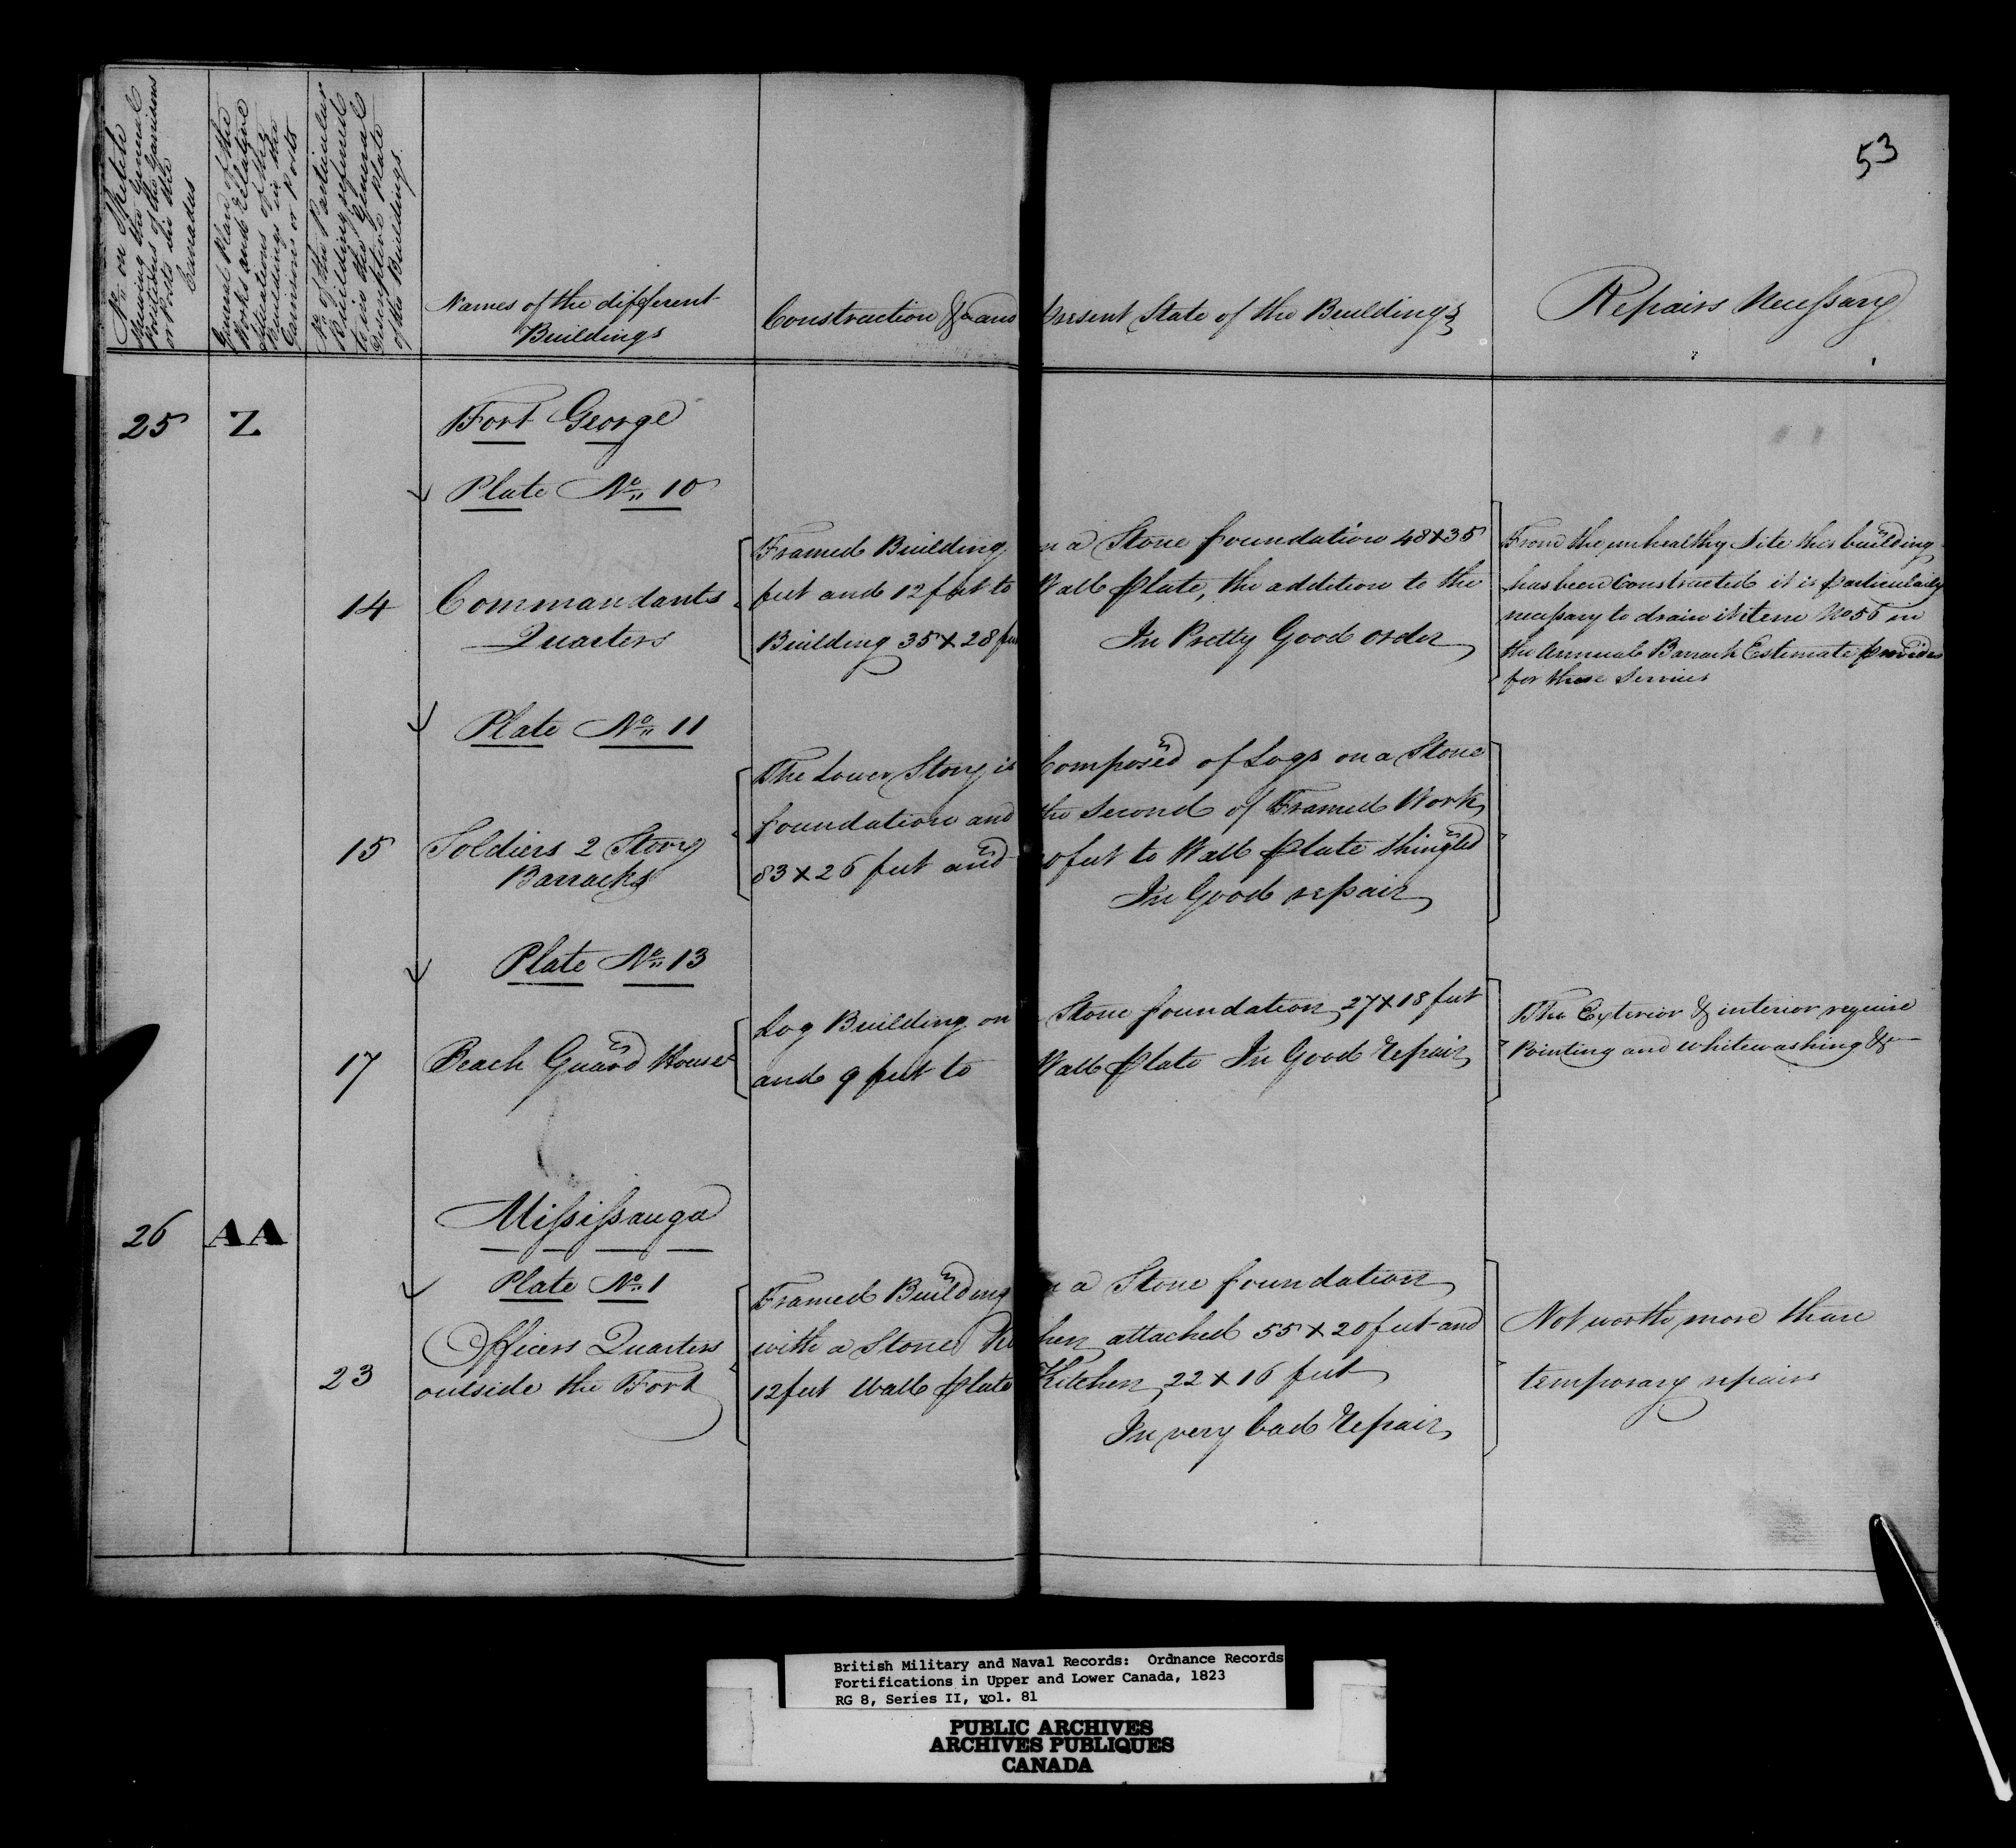 53
No. on Sketch
shewing the General
Positions of the Garrisons
or Posts in the
Canadas
General Plan of the
Works and relative
situations of the
Buildings in the
Garrisons or Posts
No. of the Particular
Building referred
to in the General
descriptive Plate
of the Buildings.
Names of the different
Buildings
Construction &c and Present State of the Buildings
Repairs Necessary
25 Z Fort George
Plate No. 10
14 Commandants
Quarters
Framed Building on a Stone foundation 48 x 35
feet and 12 feet to Wall plate, the addition to the
Building 35 x 28 feet In Pretty Good order
From the unhealthy Site this building
has been Constructed it is particularly
necessary to drain it item No 55 in
the Annual Barrack Estimate provides
for these Services
Plate No. 11
15 Soldiers 2 Story
Barracks
The Lower Story is Composed of Logs on a Stone
foundation and the Second of Framed Work
83 x 26 feet and 20 feet to Wall plate Shingled
In Good repair
Plate No. 13
17 Beach Guard House
Log Building on Stone foundation 27 x 18 feet
and 9 feet to Wall plate In Good Repair
The Exterior & interior require
Pointing and whitewashing &c
26 AA Mississauga
Plate No. 1
23 Officers Quarters
outside the Fort
Framed Building on a Stone foundation
with a Stone Kitchen attached 55 x 20 feet and
12 feet Wall plate Kitchen 22 x 16 feet
In very bad Repair
Not worth more than
temporary repairs
British Military and Naval Records: Ordnance Records
Fortifications in Upper and Lower Canada, 1823
RG 8, Series II, vol. 81
PUBLIC ARCHIVES
ARCHIVES PUBLIQUES
CANADA